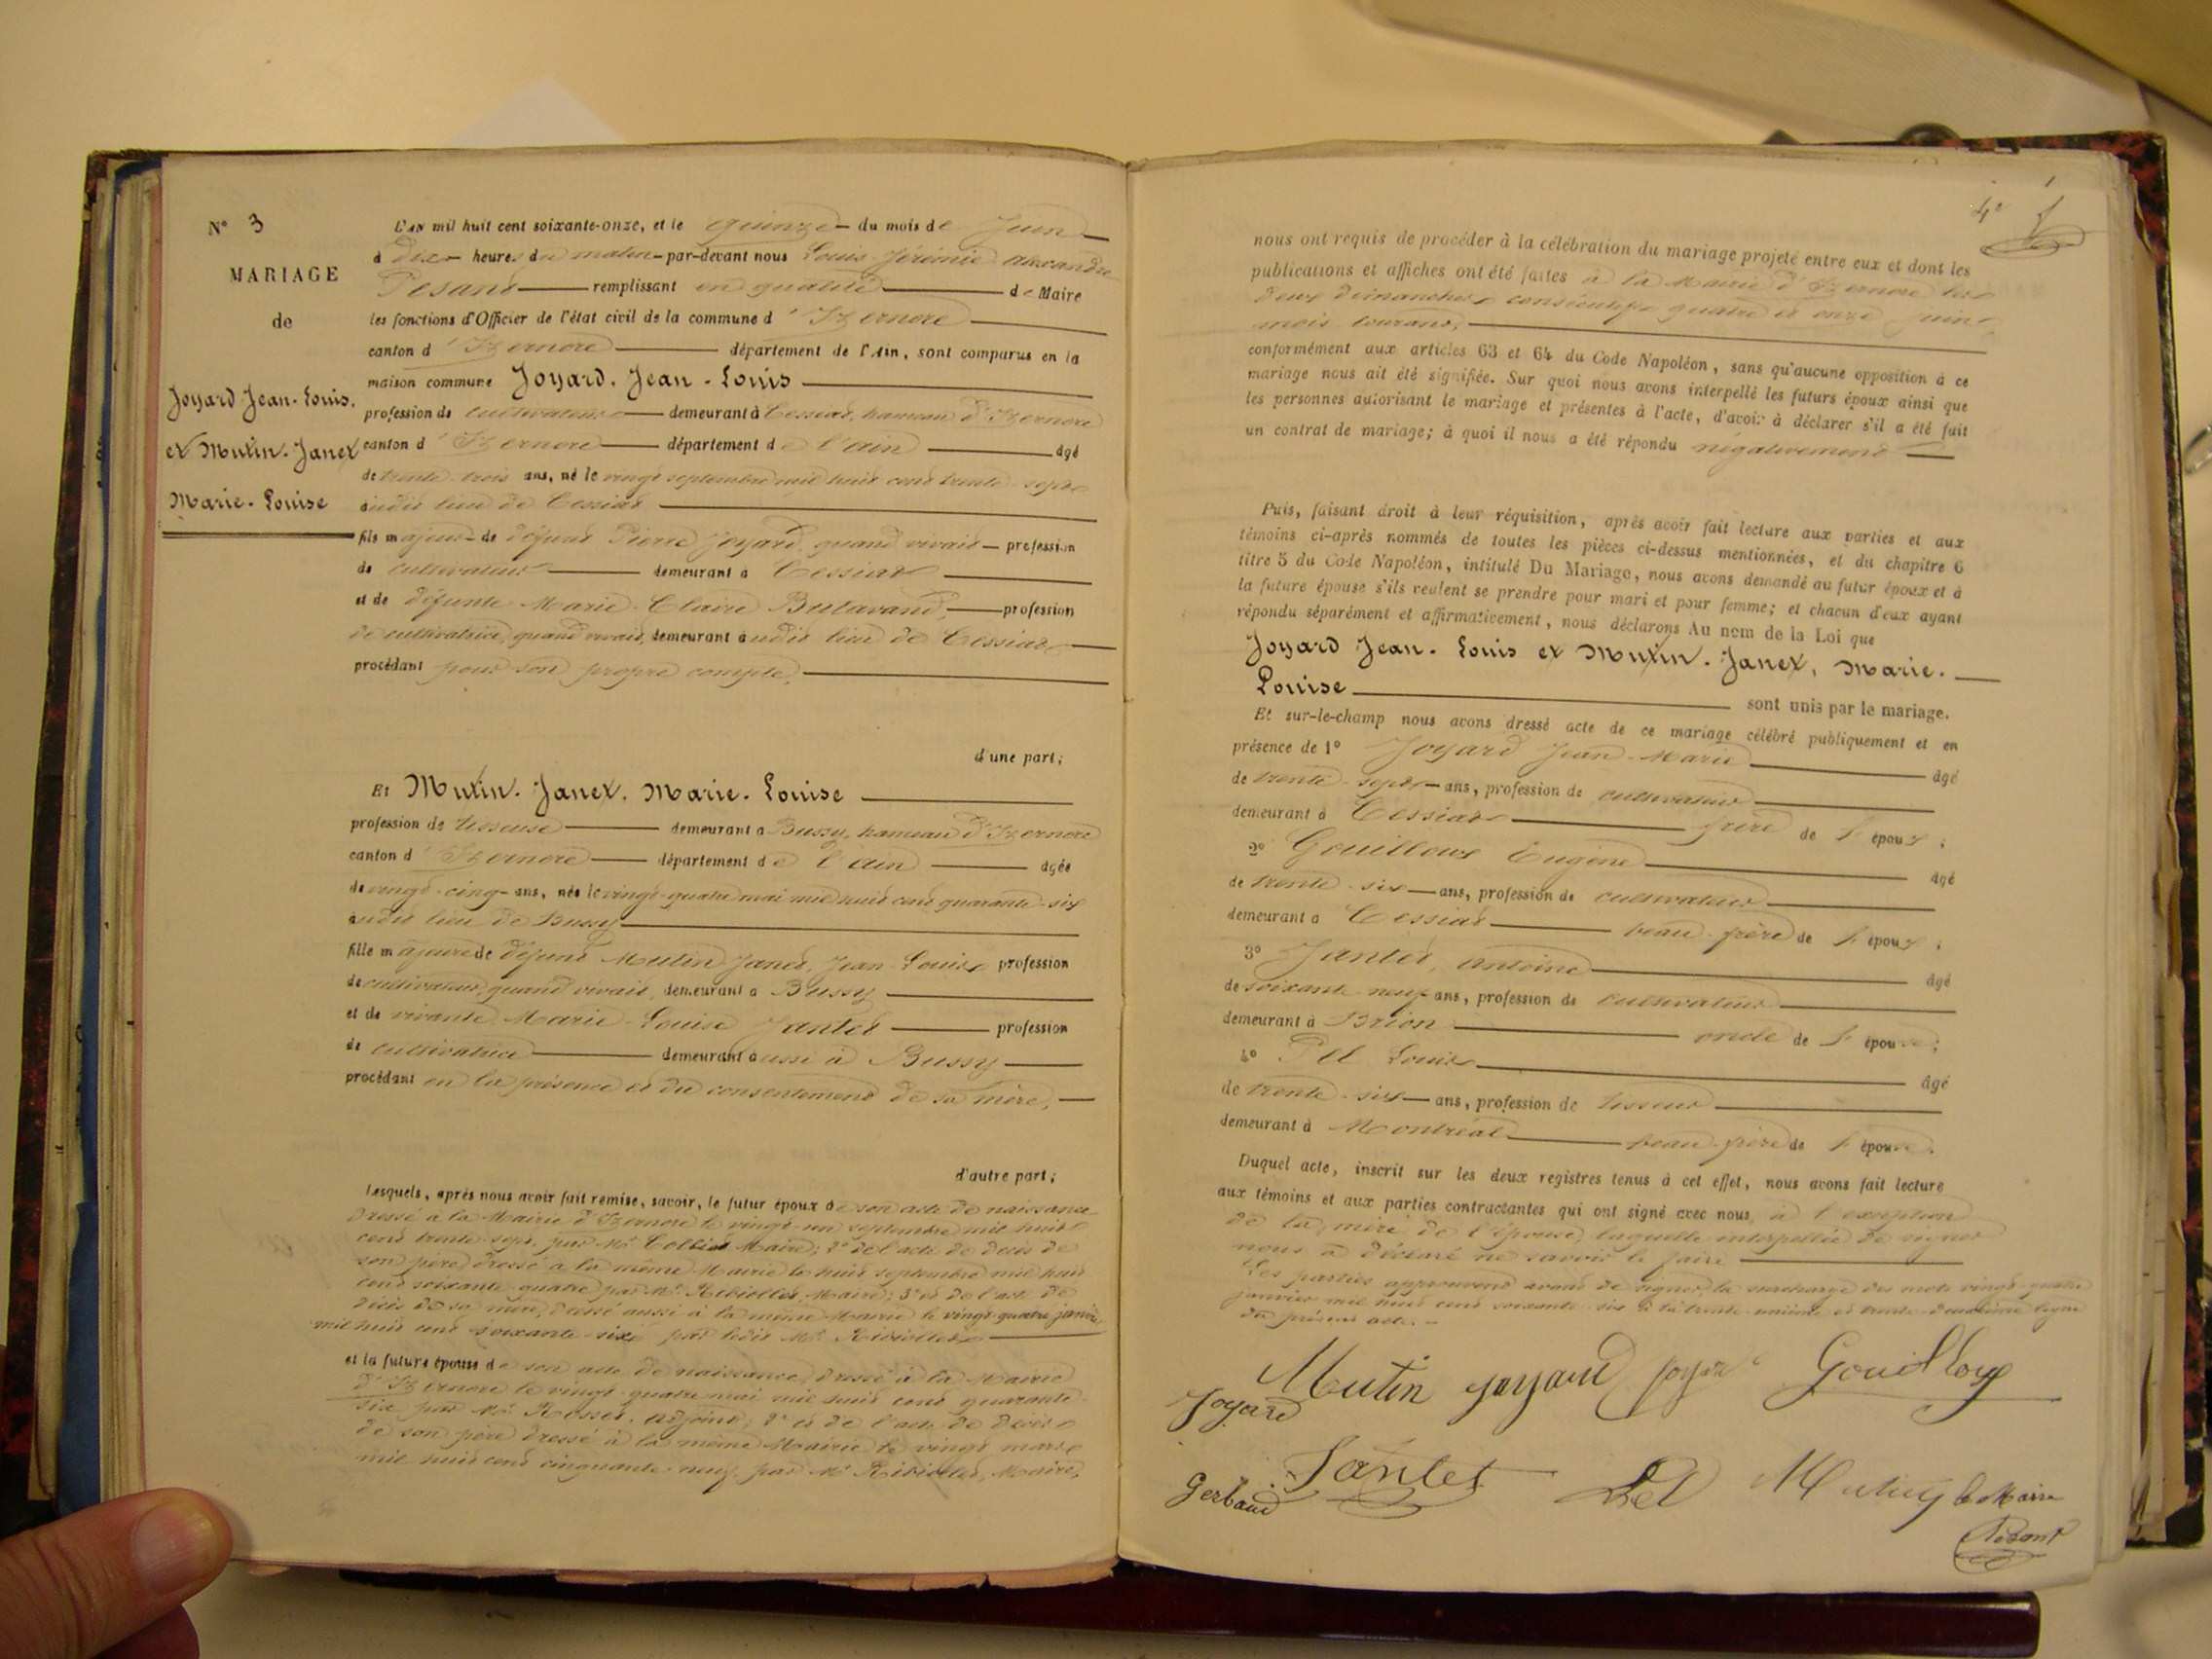 N° 3
MARIAGE
de
Joyard Jean-Louis.
et Mutin-Janet
Marie-Louise
L'AN mil huit cent soixante-onze, et le quinze du mois de Juin
à dix heures du matin par-devant nous Louis Jérémie Alexandre
Pesant remplissant en qualité de Maire
les fonctions d'Officier de l'état civil de la commune d'Izernore
canton d'Izernore département de l'Ain, sont comparus en la
maison commune Joyard. Jean-Louis
profession de cultivateur demeurant à Cessiat, hameau d'Izernore
canton d'Izernore département de l'Ain âgé
de trente-trois ans, né le vingt septembre mil huit cent trente-sept
audit lieu de Cessiat
fils majeur de défunt Pierre Joyard, quand vivait profession
de cultivateur demeurant à Cessiat
et de défunte Marie-Claire Butavand, profession
de cultivatrice, quand vivait, demeurant audit lieu de Cessiat
procédant pour son propre compte,
d'une part;
Et Mutin-Janet. Marie-Louise
profession de tisseuse demeurant à Bussy, hameau d'Izernore
canton d'Izernore département de l'Ain âgée
de vingt-cinq ans, née le vingt-quatre mai mil huit cent quarante-six
audit lieu de Bussy
fille majeure de défunt Mutin-Janet, Jean-Louis profession
de cultivateur, quand vivait, demeurant à Bussy
et de vivante Marie-Louise Jantet profession
de cultivatrice demeurant aussi à Bussy
procédant en la présence et du consentement de sa mère,
d'autre part;
Lesquels, après nous avoir fait remise, savoir, le futur époux de son acte de naissance
dressé à la Mairie d'Izernore le vingt-un septembre mil huit
cent trente-sept, par Mr Maire; 2° de l'acte de décès de
son père dressé à la même Mairie le huit septembre mil huit
cent soixante-quatre par Mr Maire; 3° et de l'acte de
décès de sa mère, dressé aussi à la même Mairie le vingt-quatre janvier
mil huit cent soixante-six par ledit Mr
et la future épouse de son acte de naissance, dressé à la Mairie
d'Izernore le vingt-quatre mai mil huit cent quarante-
six par Mr Rosset, adjoint; 2° et de l'acte de décès
de son père dressé à la même Mairie le vingt mars
mil huit cent cinquante-neuf par Mr Maire,
nous ont requis de procéder à la célébration du mariage projeté entre eux et dont les
publications et affiches ont été faites à la Mairie d'Izernore les
deux dimanches consécutifs quatre et onze juin
mois courant,
conformément aux articles 63 et 64 du Code Napoléon, sans qu'aucune opposition à ce
mariage nous ait été signifiée. Sur quoi nous avons interpellé les futurs époux ainsi que
les personnes autorisant le mariage et présentes à l'acte, d'avoir à déclarer s'il a été fait
un contrat de mariage; à quoi il nous a été répondu négativement
Puis, faisant droit à leur réquisition, après avoir fait lecture aux parties et aux
témoins ci-après nommés de toutes les pièces ci-dessus mentionnées, et du chapitre 6
titre 5 du Code Napoléon, intitulé Du Mariage, nous avons demandé au futur époux et à
la future épouse s'ils veulent se prendre pour mari et pour femme; et chacun d'eux ayant
répondu séparément et affirmativement, nous déclarons Au nom de la Loi que
Joyard Jean-Louis et Mutin-Janet, Marie-
Louise sont unis par le mariage.
Et sur-le-champ nous avons dressé acte de ce mariage célébré publiquement et en
présence de 1° Joyard Jean-Marie âgé
de trente-sept ans, profession de cultivateur
demeurant à Cessiat frère de l'époux;
2° Gouilloux Eugène âgé
de trente-six ans, profession de cultivateur
demeurant à Cessiat beau-frère de l'époux;
3° Jantet, Antoine âgé
de soixante-neuf ans, profession de cultivateur
demeurant à Brion oncle de l'épouse;
4° Louis âgé
de trente-six ans, profession de tisseur
demeurant à Montréal beau-frère de l'épouse.
Duquel acte, inscrit sur les deux registres tenus à cet effet, nous avons fait lecture
aux témoins et aux parties contractantes qui ont signé avec nous, à l'exception
de la mère de l'épouse, laquelle interpellée de signer
nous a déclaré ne savoir le faire
Les parties approuvent avant de signer, la surcharge des mots vingt-quatre
janvier mil huit cent soixante-six à la trente-unième et trente-deuxième ligne
du présent acte.
Mutin Joyard Joyard Gouilloux
Joyard
Jantet
Gerbaud
le Maire
Pesant